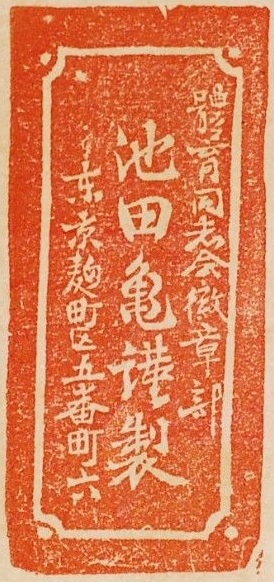 體育同志会徽章部
池田亀謹製
東京麹町区五番町六